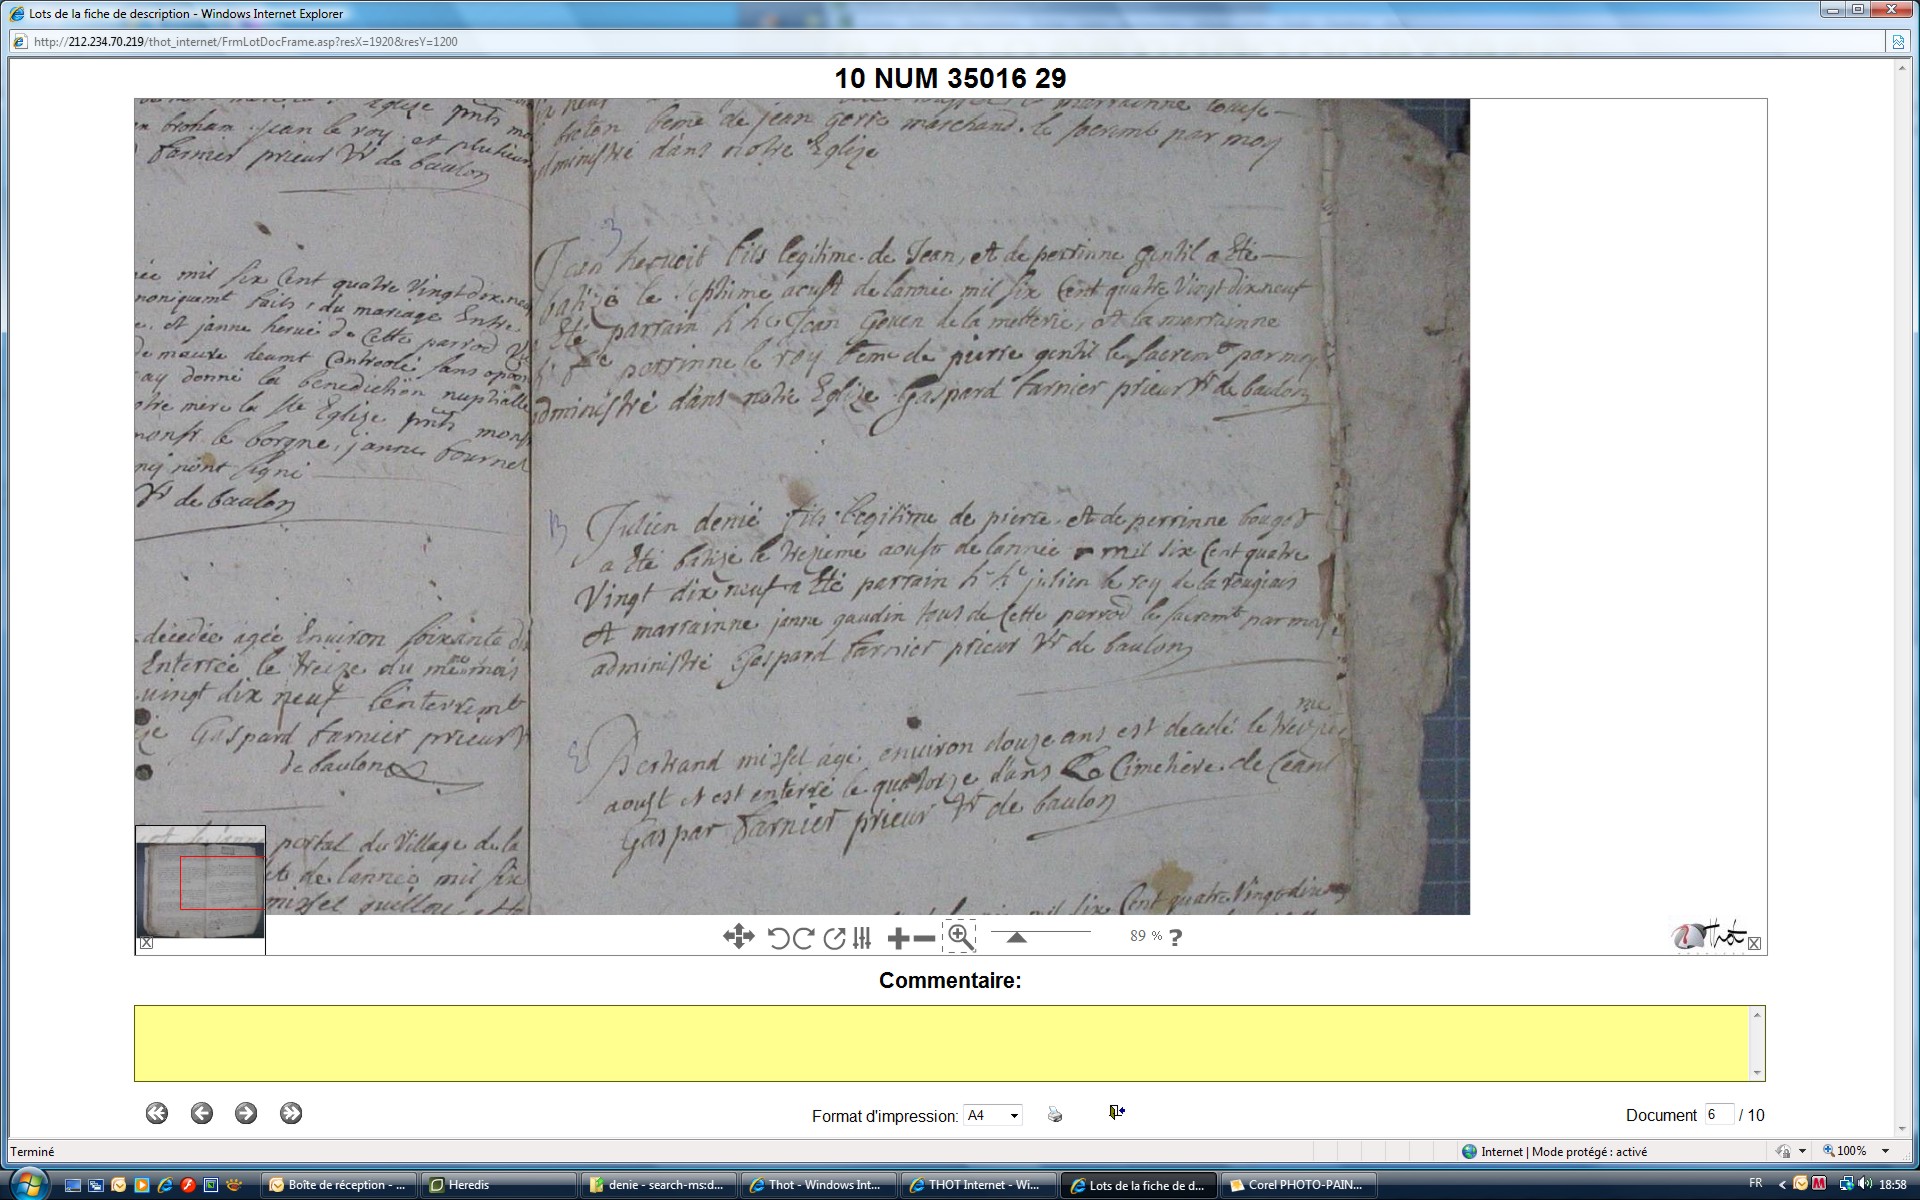 Lots de la fiche de description - Windows Internet Explorer
http://212.234.70.219/thot_internet/FrmLotDocFrame.asp?resX=1920&resY=1200
10 NUM 35016 29
Eglize pnts
broham jean le roy et plusieurs
farnier prieur Vr de baulon
mil six Cent quatre Vingt dix neuf
faits du mariage Entre
Et janne herué de Cette parrod
de maure
ay donné la benediction nuptialle
mere la Ste Eglize pnts
le borgne, janne
nont signé
Vr de baulon
décédée agée Environ soixante
Enterrée le treize du mesme mois
vingt dix neuf l'enterremt
Gaspard farnier prieur Vr
de baulon
portal du Village de la
de lannée mil six
missel guillou
marrainne
breton feme de jean marchand le sacremt par moy
administré dans notre Eglize
3
Jean heruoit fils legitime de Jean, et de perrinne gentil a Eté
batizé le septhime aoust de lannée mil six Cent quatre Vingt dix neuf
a Eté parrain h h Jean Gouen de la metterie, Et la marrainne
perrinne le roy feme de pierre gentil le sacremt par moy
administré dans notre Eglize Gaspard farnier prieur Vr de baulon
13
Julien denié fils legitime de pierre et de perrinne bougot
a Eté batizé le trezieme aoust de lannée mil six Cent quatre
Vingt dix neuf a Eté parrain h h julien le roy de la rougiais
Et marrainne janne gaudin tous de Cette parrod le sacremt par moy
administré Gaspard farnier prieur Vr de baulon
Bertrand missel agé environ douze ans est decedé le treizieme
aoust et est enterré le quatorze dans Le Cimetiere de Ceans
Gaspar farnier prieur Vr de baulon
mil six Cent quatre Vingt dix neuf
89 % ?
Thot
Commentaire:
Format d'impression: A4
Document 6 / 10
Terminé
Internet | Mode protégé : activé
100%
Boîte de réception - ...
Heredis
denie - search-ms:d...
Thot - Windows Int...
THOT Internet - Wi...
Lots de la fiche de d...
Corel PHOTO-PAIN...
FR
18:58